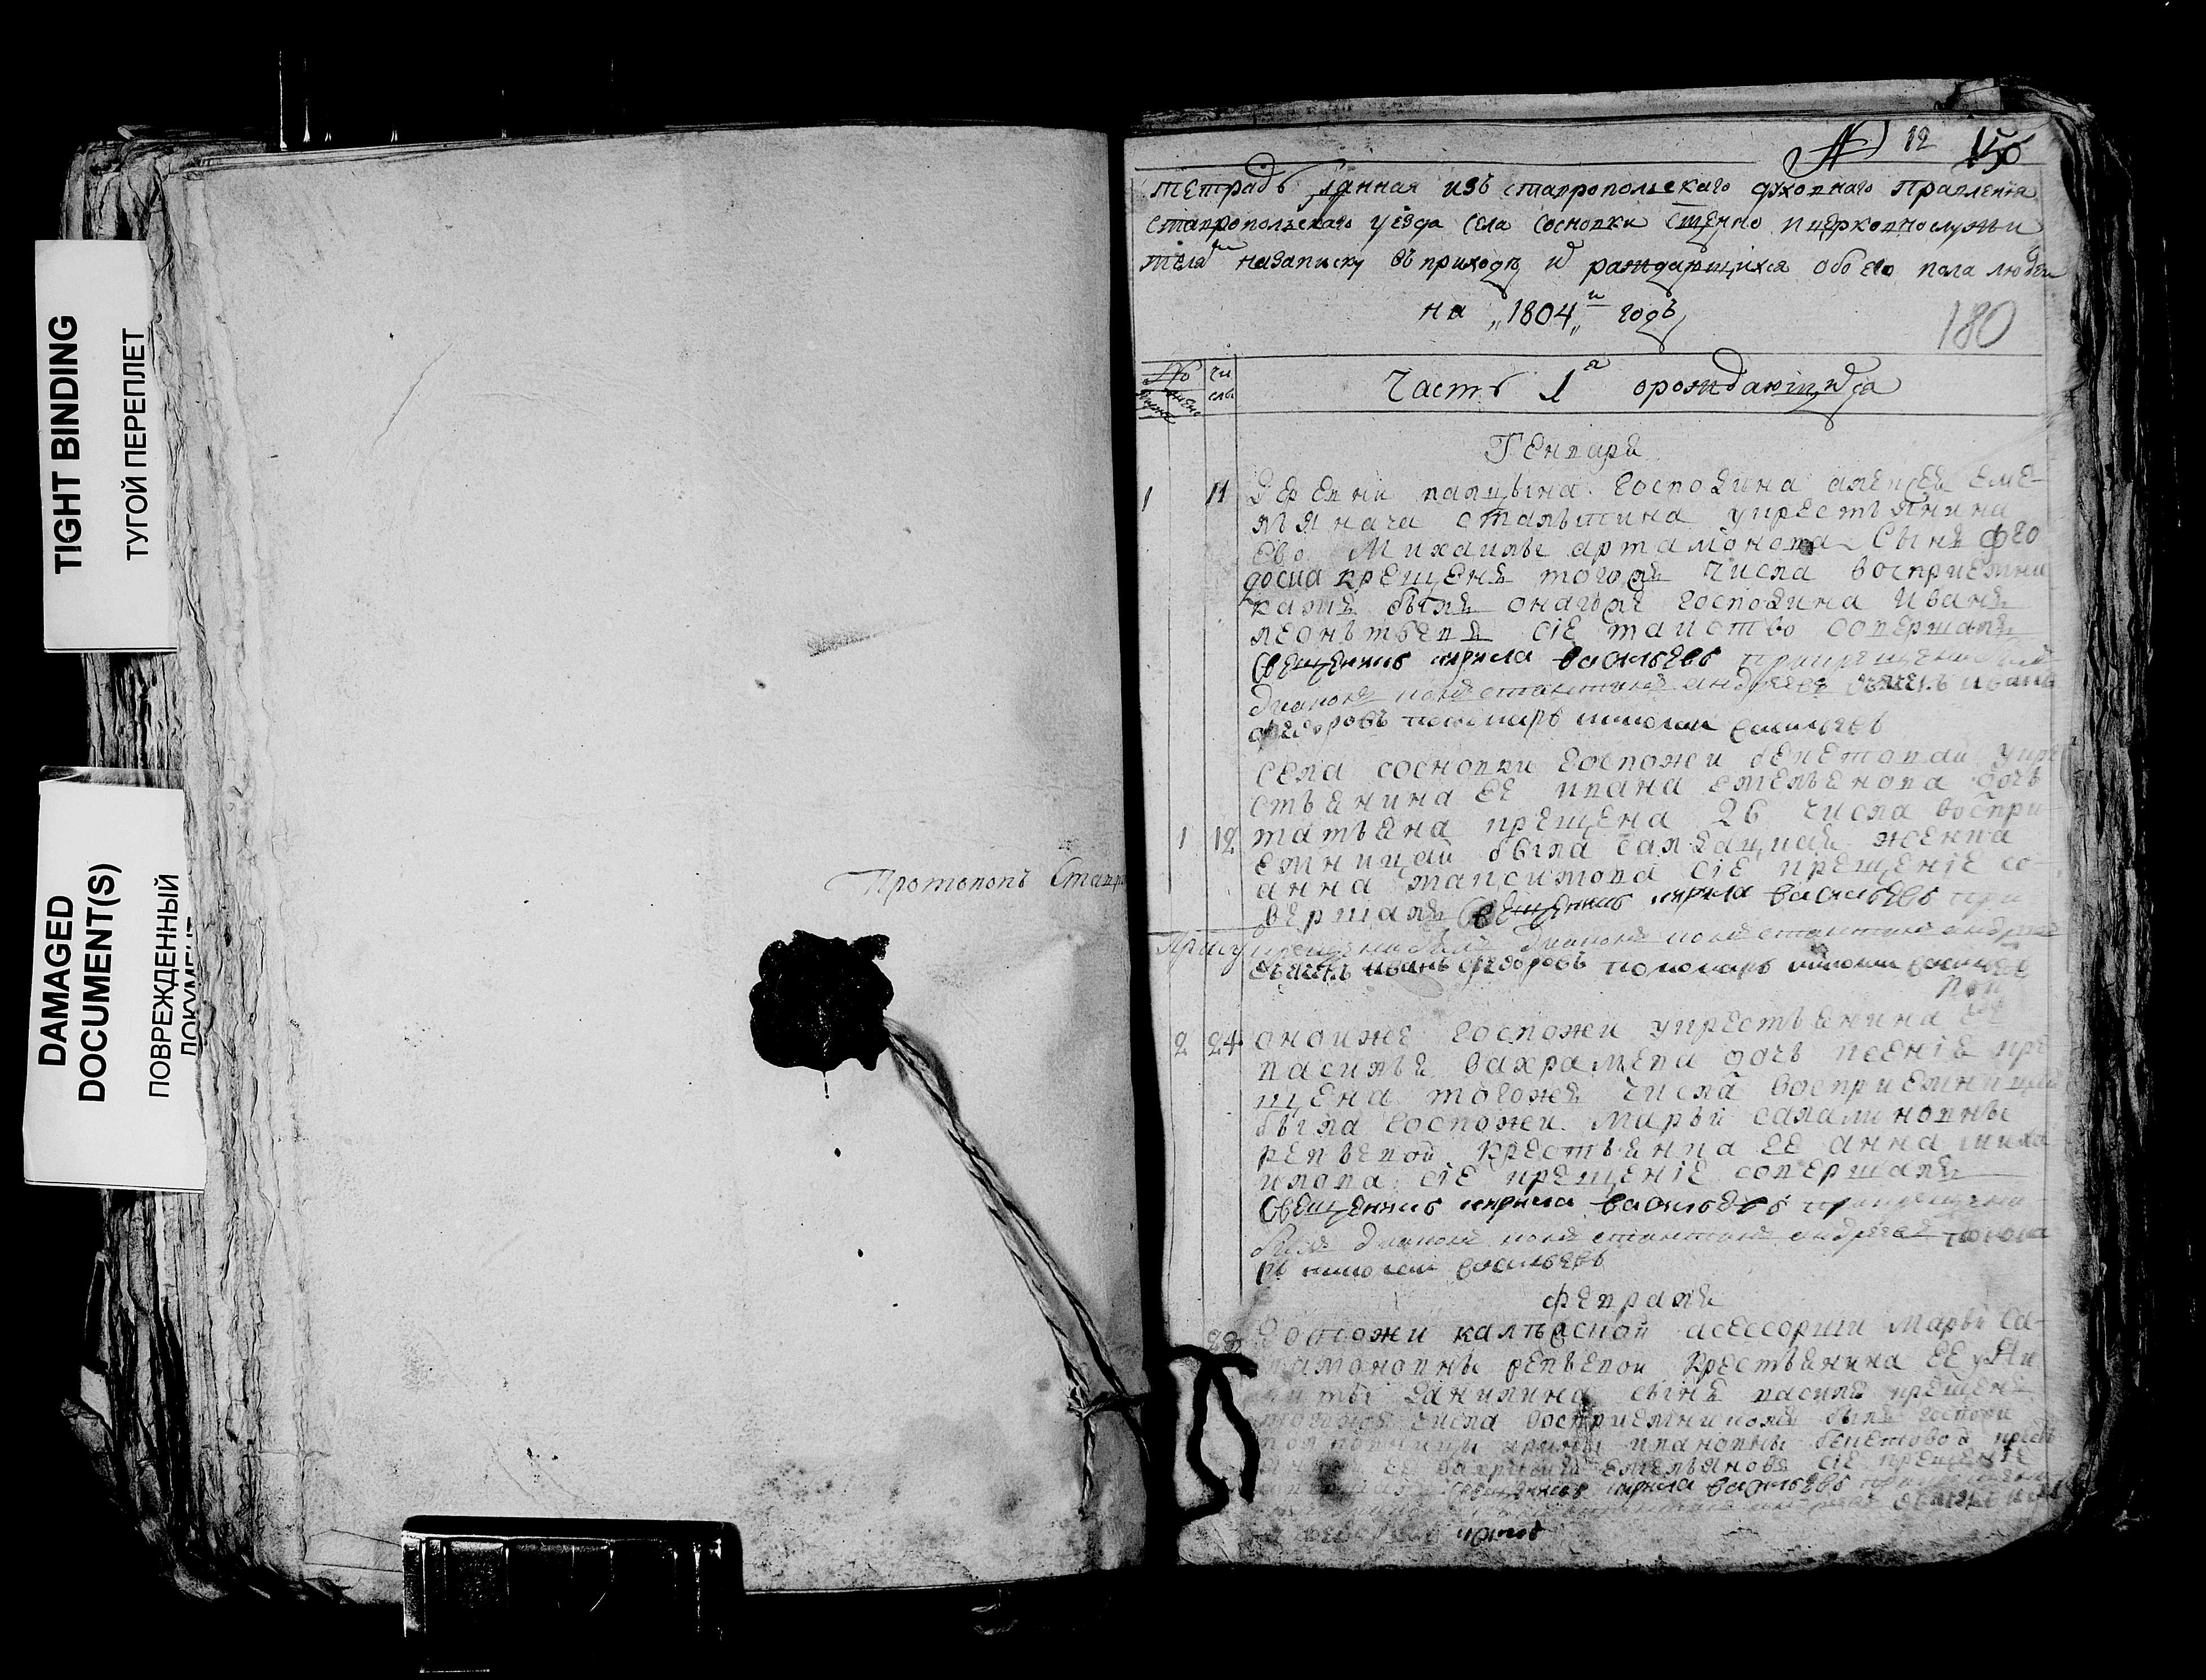 TIGHT BINDING
ТУГОЙ ПЕРЕПЛЕТ
DAMAGED
DOCUMENT(S)
ПОВРЕЖДЕННЫЙ
ДОКУМЕНТ
Протопопъ Ставр
№ 12 150
тетрадь данная изъ ставропольскаго духовнаго правленія
ставропольскаго уезда села сосновки священно и церковнослужи
телям на записку въ приходѣ их раждающихся обоего пола людеи
на „1804„ и годъ
180
№ чи
слы
Часть 1я о рождающихся
Генваря
1 11 деревни господина алексея еме-
льянача сталыпина у крестьянина
ево михаилы артамонова сынъ фео
досиа крещенъ тогожъ числа восприемни
камъ былъ онагоже господина иванъ
леонтьевъ сіе таиство совершалъ
священникъ кирила васильевъ при крещении былъ
диаконъ константинъ андреевъ дьячекъ иванъ
федоровъ пономарь николаи васильевъ
села сосновки госпожи бекетовай у кре
стьенина ее ивана емельенова дочь
1 12 татьена крещена 26 числа воспри-
емницаи была салдацкая женка
анна максимова сіе крещеніе со-
вершалъ священникъ кирила васильевъ при
крещении былъ диаконъ константинъ андреев
дьячекъ иванъ федоровъ пономарь николаи васильев
2 24 онаиже госпожи у крестьенина ее
василья вахрамева дочь ксеніе кре
щена тогожъ числа восприемницаи
была госпожи марьи саламоновны
репьевои крестьенка ее анна миха
илова сіе крещеніе совершалъ
священникъ кирила васильевъ при крещении
былъ диаконъ константинъ андреев понома
рь николаи васильевъ
февраля
28 госпожи калежскои асессорши марьи са-
ламоновны репьевои крестьенина ее у ни
киты данилина сынъ василе крещенъ
тогожъ числа восприемникомъ былъ госпожи
ирины ивановны бекетовой крестья
ее емельяновъ сіе крещеніе
священникъ кирила васильевъ при крещении